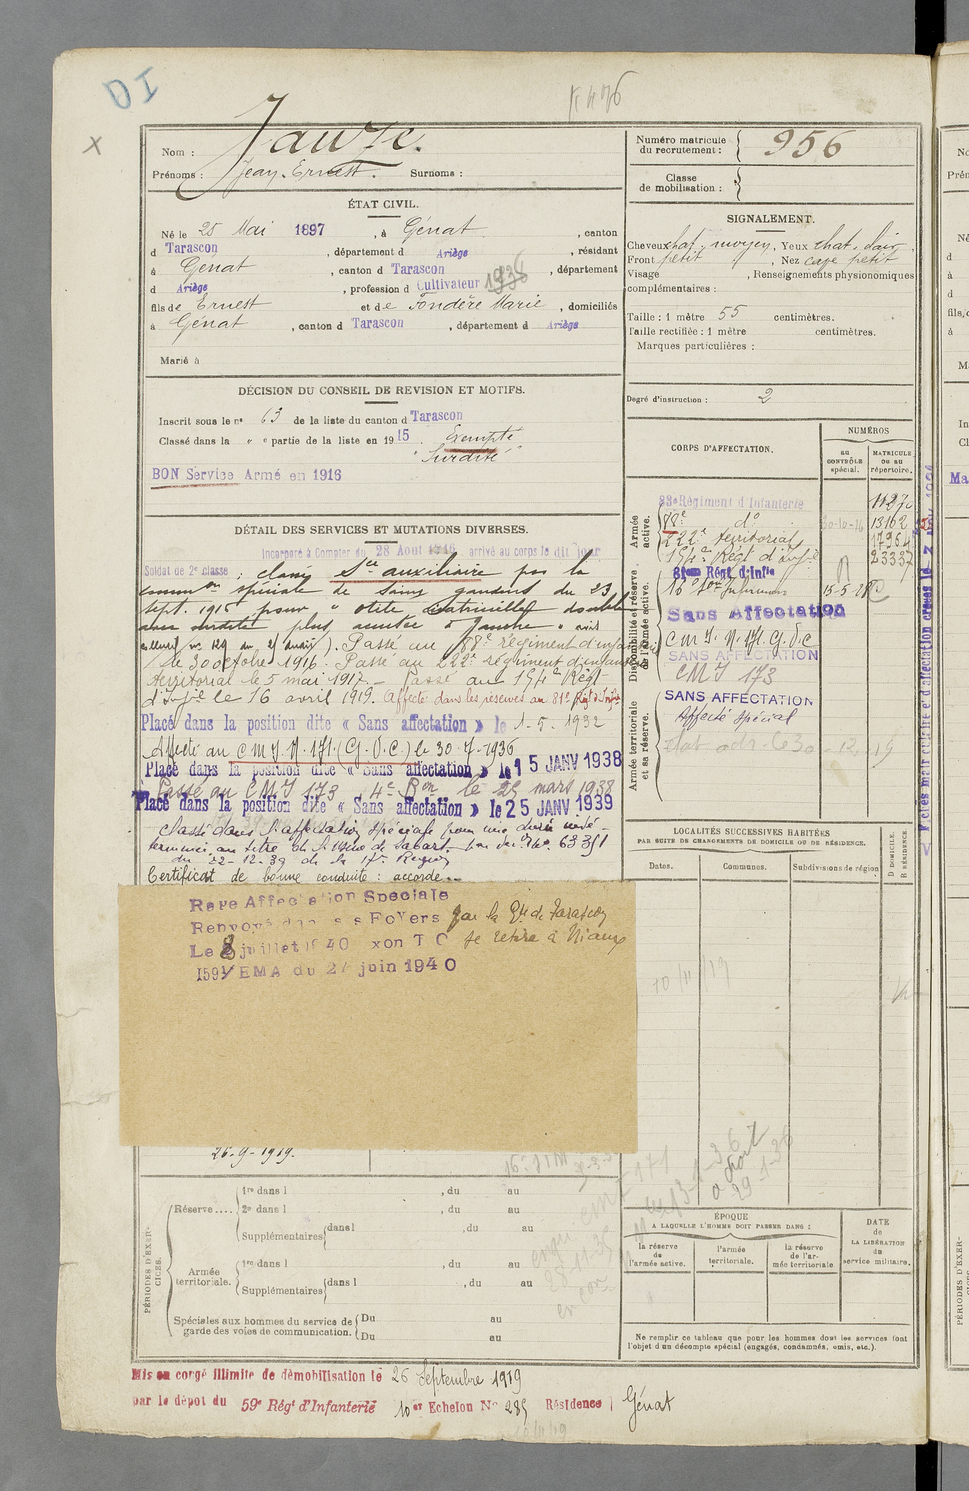 DI
K 476
x
Nom : Jauze.
Prénoms : Jean-Ernest. Surnoms :
Numéro matricule du recrutement : 956
Classe de mobilisation :
ÉTAT CIVIL.
Né le 25 Mai 1897, à Génat, canton
d Tarascon, département d Ariège, résidant
à Génat, canton d Tarascon, département
d Ariège, profession d Cultivateur 1936
fils de Ernest et de Fondère Marie, domiciliés
à Génat, canton d Tarascon, département d Ariège
Marié à
SIGNALEMENT.
Cheveux chat. moyen, Yeux chat. clair,
Front petit, Nez cave petit
Visage, Renseignements physionomiques
complémentaires :
Taille : 1 mètre 55 centimètres.
Taille rectifiée : 1 mètre centimètres.
Marques particulières :
Degré d'instruction : 2
DÉCISION DU CONSEIL DE REVISION ET MOTIFS.
Inscrit sous le n° 63 de la liste du canton d Tarascon
Classé dans la " " partie de la liste en 1915. Exempté
"Surdité"
BON Service Armé en 1916
CORPS D'AFFECTATION.
NUMÉROS
AU CONTRÔLE spécial.
MATRICULE OU AU répertoire.
Armée active.
88e Régiment d'Infanterie
88e do 30-10-16 13162
222e territorial 17954
154e Régt d'Infie 23337
Disponibilité et réserve de l'armée active.
81eme Régt d'Infie
Sans Affectation
C M I. N. 171. G.V.C
SANS AFFECTATION
CMI 173
Armée territoriale et sa réserve.
SANS AFFECTATION
Affecté Spécial
DÉTAIL DES SERVICES ET MUTATIONS DIVERSES.
Incorporé à Compter du 28 Aout 1916 arrivé au corps le dit jour
Soldat de 2e classe : classé Sce auxiliaire par la
spéciale de du 23
sept. 1915 pour " otite double
avec surdité plus à gauche " avis
). Passé au 88e régiment d'infanterie
le 30 octobre 1916. Passé au 222e régiment d'infanterie
territorial le 5 mai 1917. - Passé au 154e Régt
d'Infie le 16 avril 1919. Affecté dans les réserves au 81e Régt d'Infie
Placé dans la position dite « Sans affectation » le 1-5-1932
Affecté au C M I. N. 171. (G.V.C.) le 30-7-1936
Placé dans la position dite « Sans affectation » le 15 JANV 1938
Passé au CMI 173, 4e Bon le 25 mars 1938
Placé dans la position dite « Sans affectation » le 25 JANV 1939
Classé dans l'affectation spéciale pour une durée indé-
terminée au titre de l'usine de Sabart, 63351
du 22-12-39 de la 17e Région
Certificat de bonne conduite : accordé
Raye Affectation Speciale
Renvoyé dans ses Foyers par la Gie de Tarascon
Le 8 juillet 1940 xon T O se retire à Niaux
1591/EMA du 27 juin 1940
26-9-1919.
LOCALITÉS SUCCESSIVES HABITÉES
PAR SUITE DE CHANGEMENTS DE DOMICILE OU DE RÉSIDENCE.
Dates. Communes. Subdivisions de région
D DOMICILE.
R RÉSIDENCE.
10/11/19
PÉRIODES D'EXERCICES.
Réserve....
1re dans l, du au
2e dans l, du au
Supplémentaires dans l, du au
Armée territoriale.
1re dans l, du au
Supplémentaires dans l, du au
Spéciales aux hommes du service de garde des voies de communication.
Du au
Du au
ÉPOQUE
A LAQUELLE L'HOMME DOIT PASSER DANS :
la réserve de l'armée active.
l'armée territoriale.
la réserve de l'armée territoriale
DATE DE LA LIBÉRATION du service militaire.
Ne remplir ce tableau que pour les hommes dont les services font
l'objet d'un décompte spécial (engagés, condamnés, omis, etc.).
Mis en congé illimité de démobilisation le 26 Septembre 1919
par le dépôt du 59e Régt d'Infanterie 10er Echelon N° 285 Résidence Génat